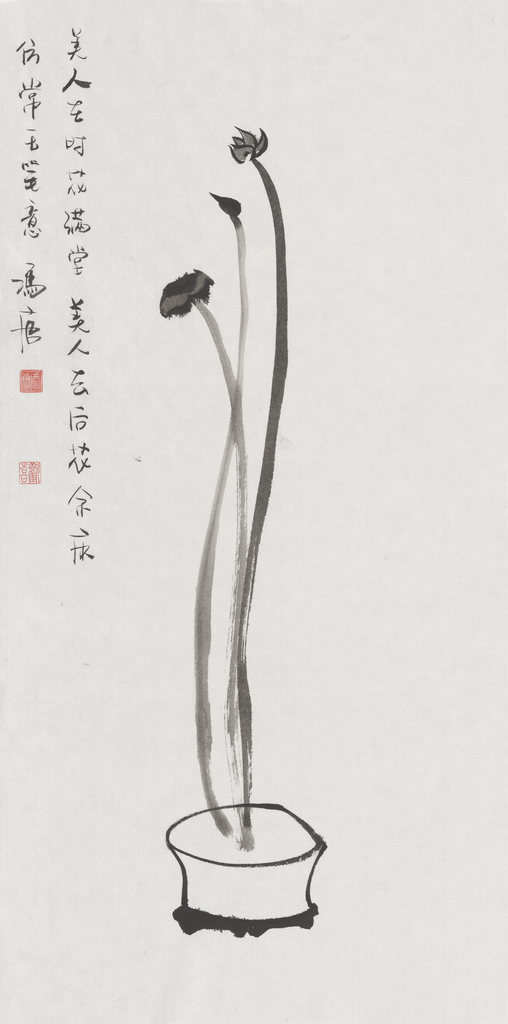 美人在时花满堂 美人去后花余床
仿常玉笔意 冯唐